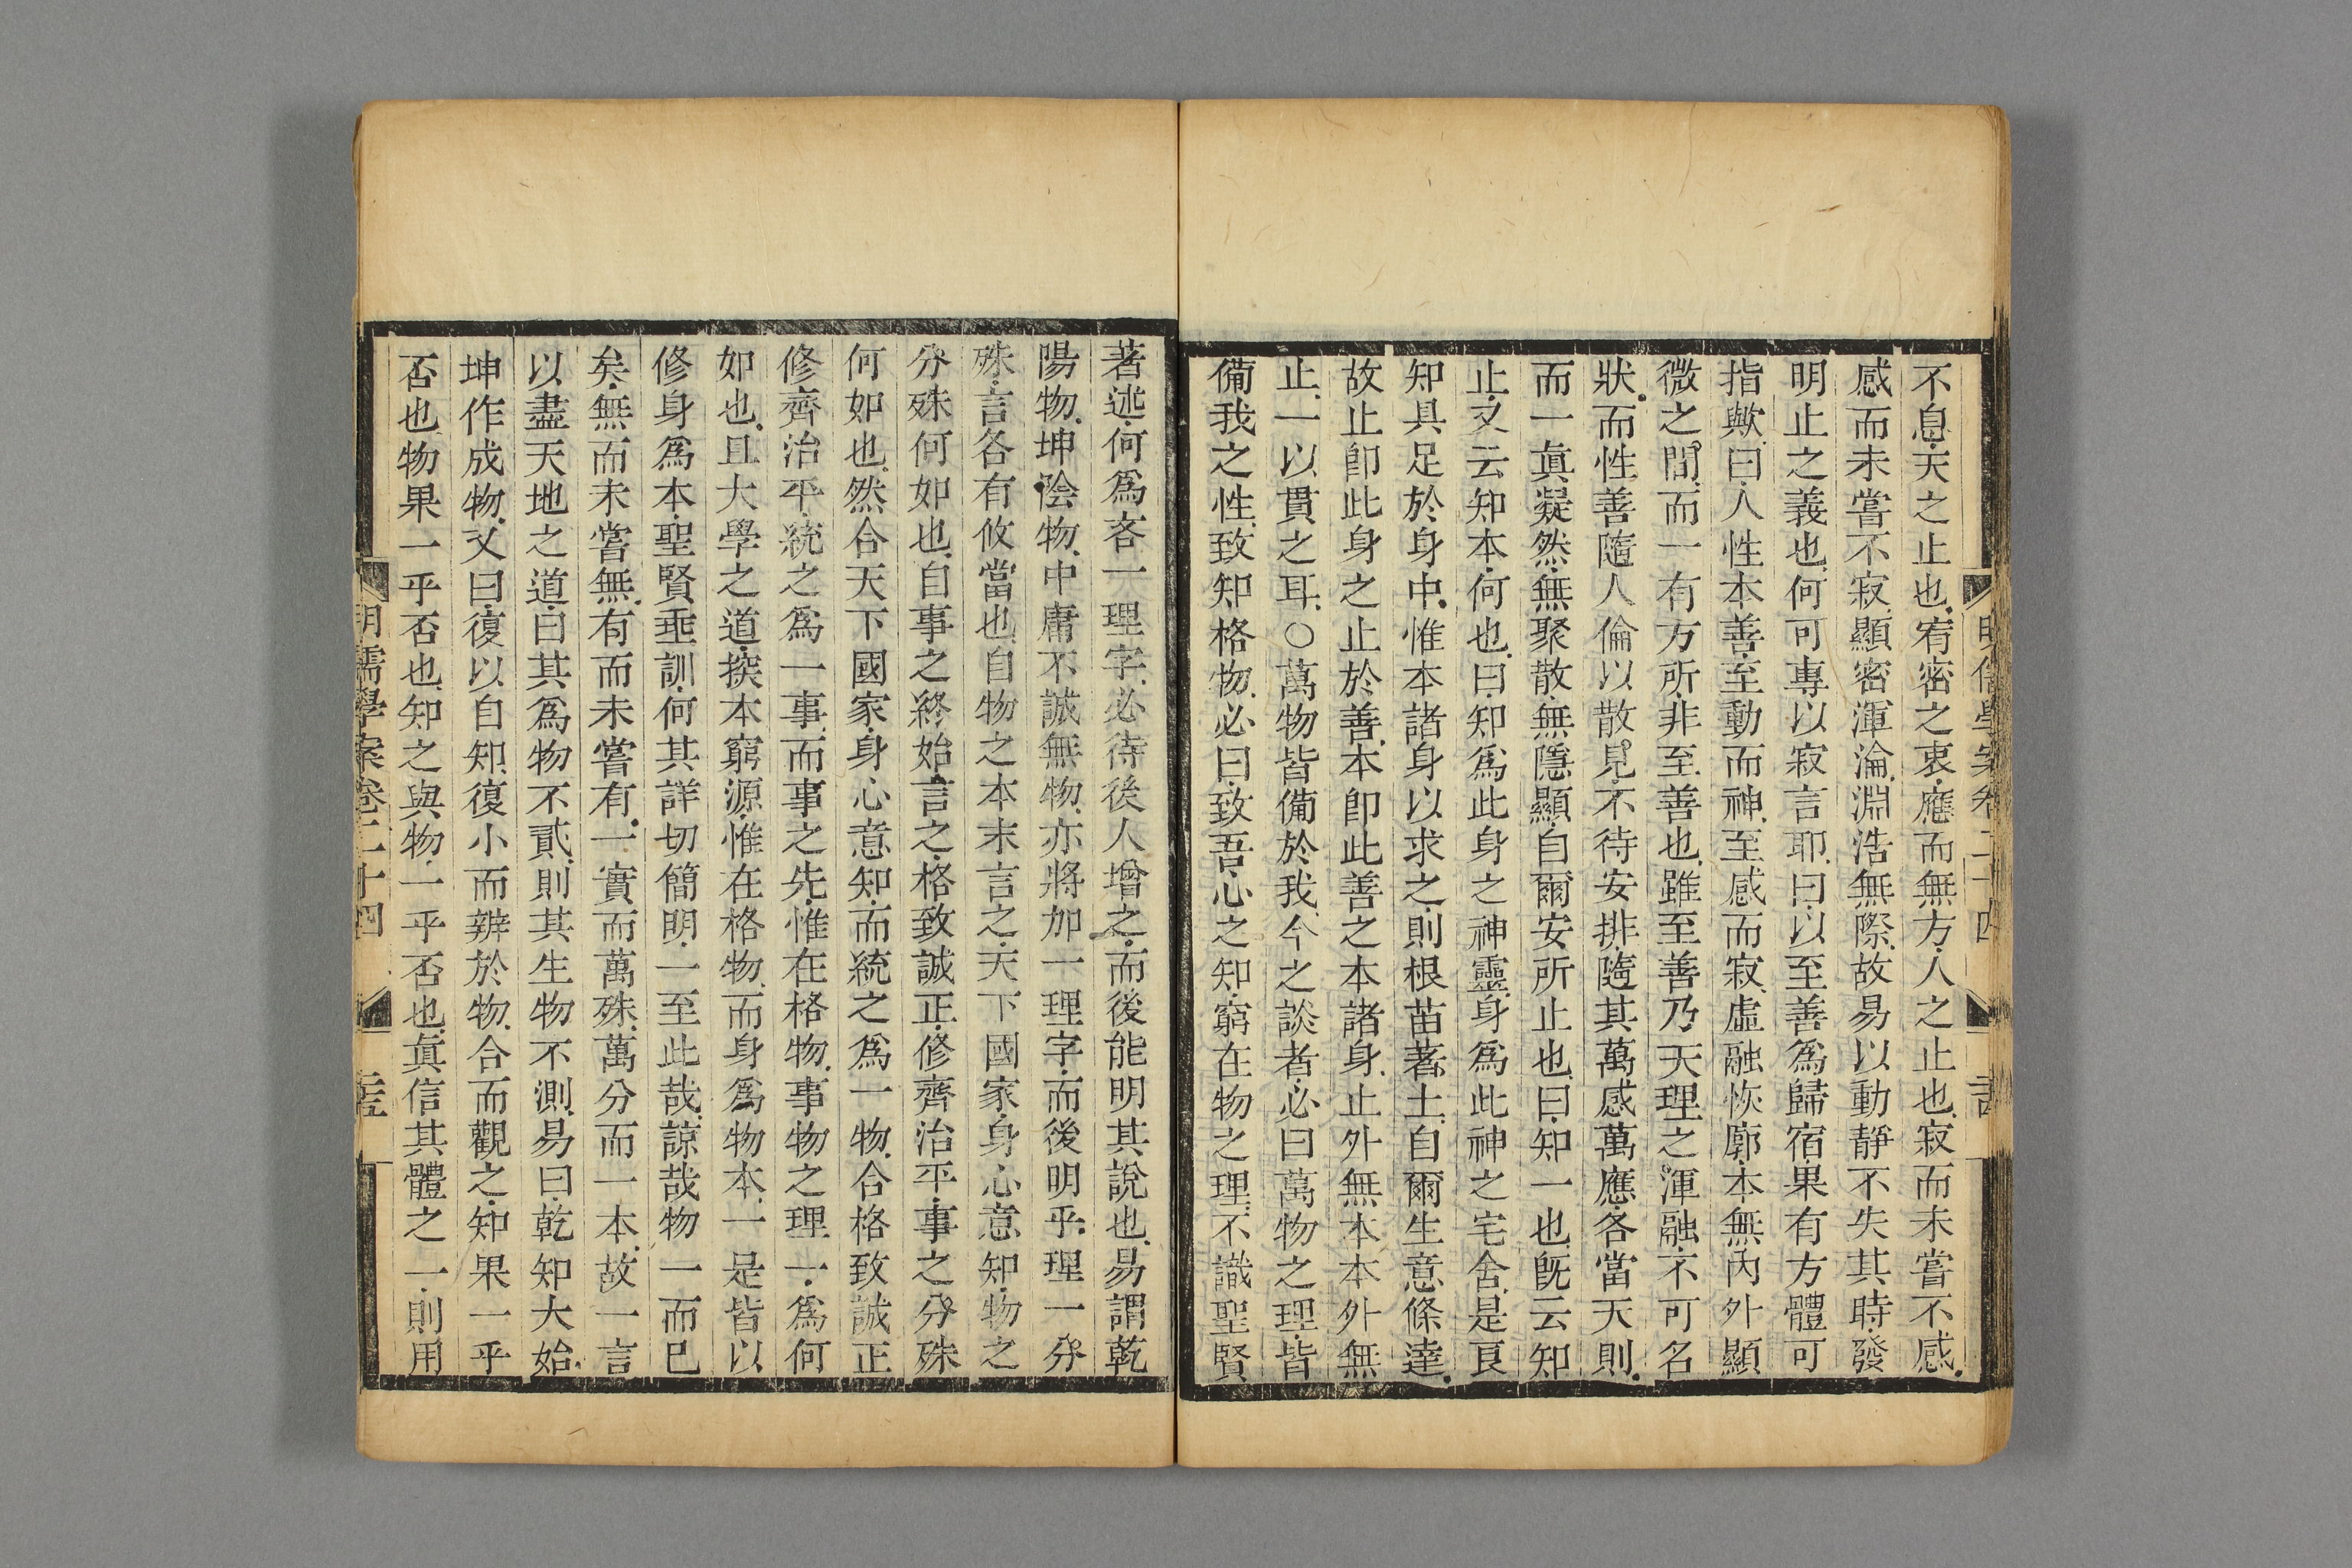 不息天之止也宥密之衷應而無方人之止也寂而未嘗不感
感而未嘗不寂顯密渾淪淵浩無際故易以動靜不失其時發
明止之義也何可專以寂言耶曰以至善爲歸宿果有方體可
指歟曰人性本善至動而神至感而寂虛融恢廓本無內外顯
微之間而一有方所非至善也雖至善乃天理之渾融不可名
狀而性善隨人倫以散見不待安排隨其萬感萬應各當天則
而一眞凝然無聚散無隱顯自爾安所止也曰知一也旣云知
止又云知本何也曰知爲此身之神靈身爲此神之宅舍是良
知具足於身中惟本諸身以求之則根苗著土自爾生意條達
故止卽此身之止於善本卽此善之本諸身止外無本本外無
止一以貫之耳○萬物皆備於我今之談者必曰萬物之理皆
備我之性致知格物必曰致吾心之知窮在物之理不識聖賢
著述何爲吝一理字必待後人增之而後能明其說也易謂乾
陽物坤陰物中庸不誠無物亦將加一理字而後明乎理一分
殊言各有攸當也自物之本末言之天下國家身心意知物之
分殊何如也自事之終始言之格致誠正修齊治平事之分殊
何如也然合天下國家身心意知而統之爲一物合格致誠正
修齊治平統之爲一事而事之先惟在格物事物之理一爲何
如也且大學之道揆本窮源惟在格物而身爲物本一是皆以
修身爲本聖賢垂訓何其詳切簡明一至此哉諒哉物一而已
矣無而未嘗無有而未嘗有一實而萬殊萬分而一本故一言
以盡天地之道曰其爲物不貳則其生物不測易曰乾知大始
坤作成物又曰復以自知復小而辨於物合而觀之知果一乎
否也物果一乎否也知之與物一乎否也眞信其體之一則用
明儒學案卷二十四